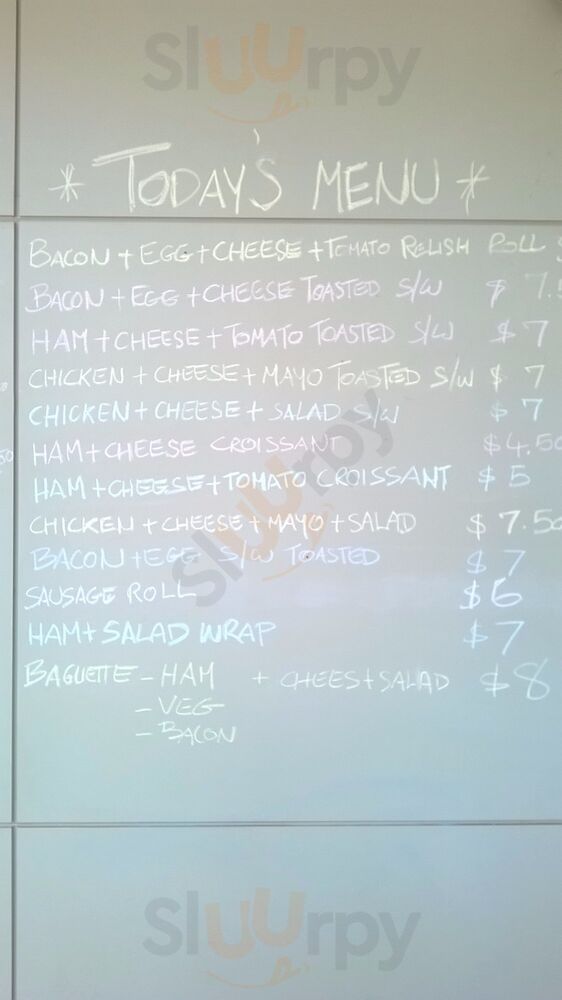 Sluurpy
* TODAY'S MENU *
BACON + EGG + CHEESE + TOMATO RELISH ROLL $
BACON + EGG + CHEESE TOASTED S/W $ 7.5
HAM + CHEESE + TOMATO TOASTED S/W $7
CHICKEN + CHEESE + MAYO TOASTED S/W $ 7
CHICKEN + CHEESE + SALAD S/W $ 7
HAM + CHEESE CROISSANT $4.50
HAM + CHEESE + TOMATO CROISSANT $ 5
CHICKEN + CHEESE + MAYO + SALAD $ 7.50
Sluurpy
BACON + EGG S/W TOASTED $ 7
SAUSAGE ROLL $6
HAM + SALAD WRAP $7
BAGUETTE - HAM + CHEES + SALAD $8
- VEG
- BACON
Sluurpy